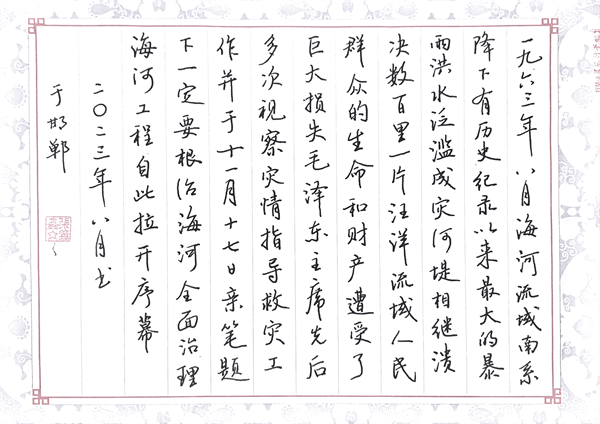 一九六三年八月海河流域南系
降下有历史纪录以来最大的暴
雨洪水泛滥成灾河堤相继溃
决数百里一片汪洋流域人民
群众的生命和财产遭受了
巨大损失毛泽东主席先后
多次视察灾情指导救灾工
作并于十一月十七日亲笔题
下一定要根治海河全面治理
海河工程自此拉开序幕
二〇二三年八月书
于邯郸